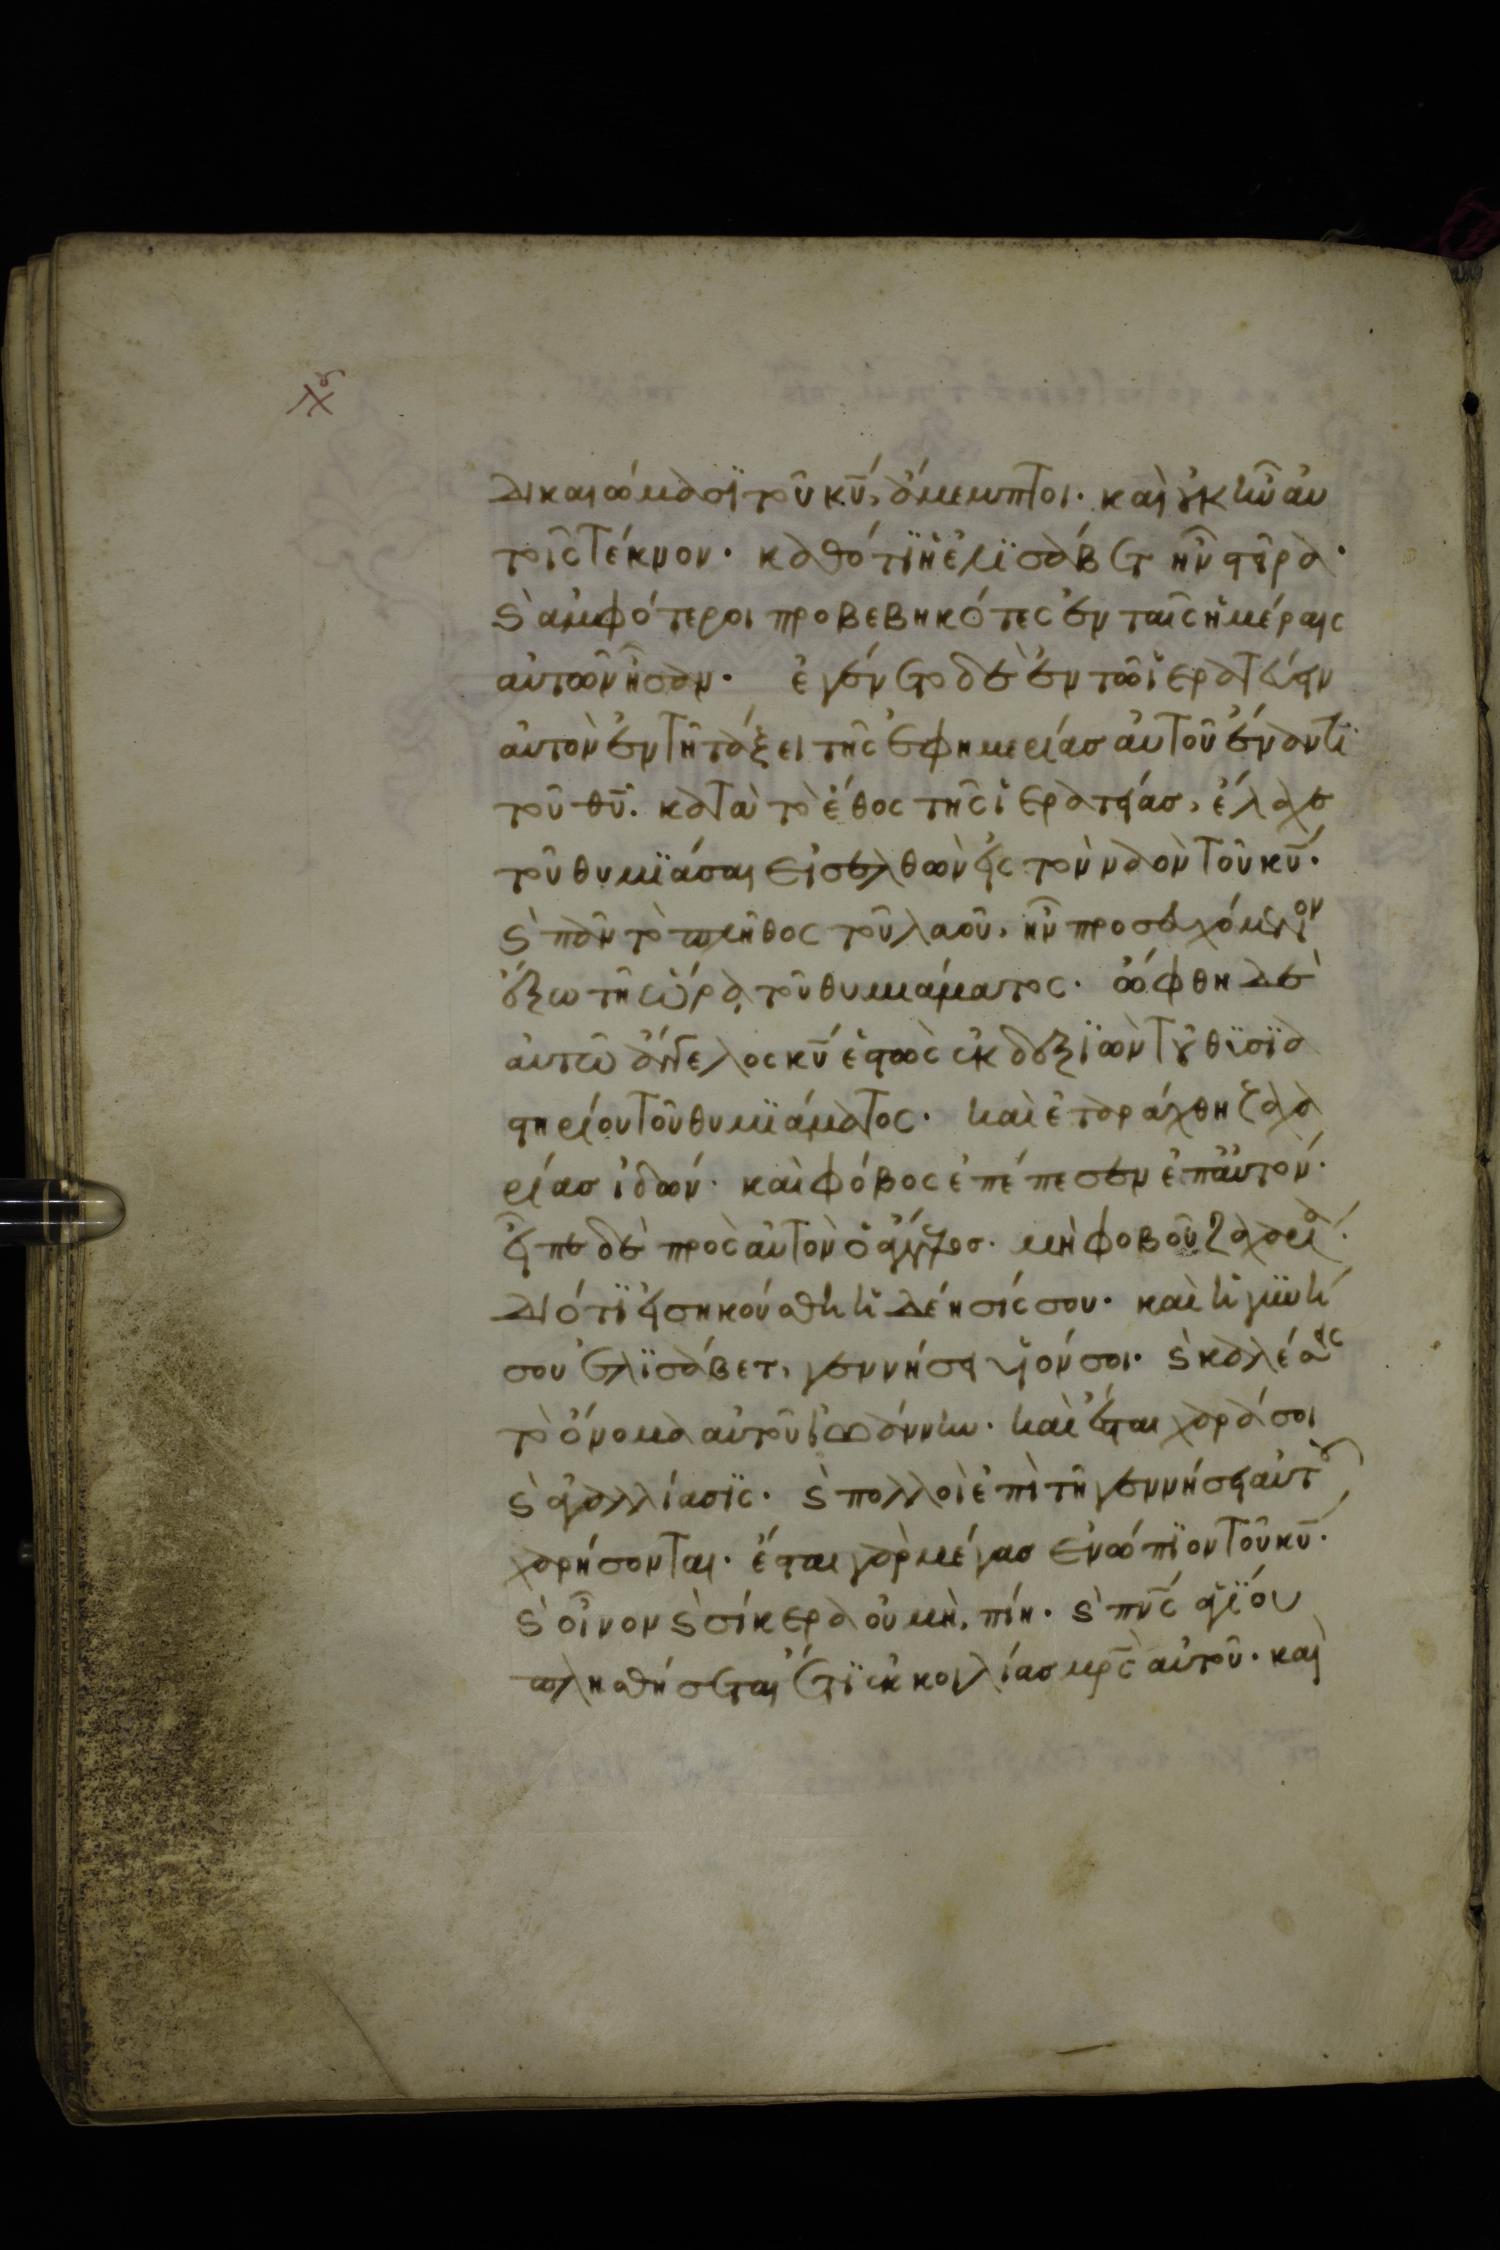 δικαιώμασι τοῦ κῦ, ἄμεμπτοι· καὶ οὐκ ἦν αὐ
τοῖς τέκνον· καθότι ἡ ἐλισάβετ ἦν στεῖρα·
ϛ ἀμφότεροι προβεβηκότες ἐν ταῖς ἡμέραις
αὐτῶν ἦσαν· ἐγένετο δὲ ἐν τῶ ἱερατεύειν
αὐτὸν ἐν τῆ τάξει τῆς ἐφημερίασ αὐτοῦ ἔναντι
τοῦ θῦ· κατὰ τὸ ἔθος τῆς ἱερατείασ, ἔλαχε
τοῦ θυμιάσαι εἰσελθὼν εἰς τὸν ναὸν τοῦ κῦ·
ϛ πᾶν τὸ πλῆθος τοῦ λαοῦ, ἦν προσευχόμενον
ἔξω τῆ ὥρα τοῦ θυμιάματος· ὤφθη δὲ
αὐτῶ ἄγγελος κῦ ἑστὼς ἐκ δεξιῶν τοῦ θυσια
στηρίου τοῦ θυμιάματος· καὶ ἐταράχθη ζαχα
ρίασ ἰδών· καὶ φόβος ἐπέπεσεν ἐπ αὐτόν·
εἶπε δὲ πρὸς αὐτὸν ὁ ἄγγελοσ· μὴ φοβοῦ ζαχαρία·
διότι εἰσηκούσθη ἡ δέησίς σου· καὶ ἡ γυνή
σου ἐλισάβετ, γεννήσει υἱόν σοι· ϛ καλέσεις
τὸ ὄνομα αὐτοῦ ἰωάννην· καὶ ἔσται χαρά σοι
ϛ ἀγαλλίασις· ϛ πολλοὶ ἐπὶ τῆ γεννήσει αὐτοῦ
χαρήσονται· ἔσται γὰρ μέγασ ἐνώπιον τοῦ κῦ·
ϛ οἶνον ϛ σίκερα οὐ μὴ πίη· ϛ πνς ἁγίου
πλησθήσεται ἔτι ἐκ κοιλίασ μρς αὐτοῦ· καὶ